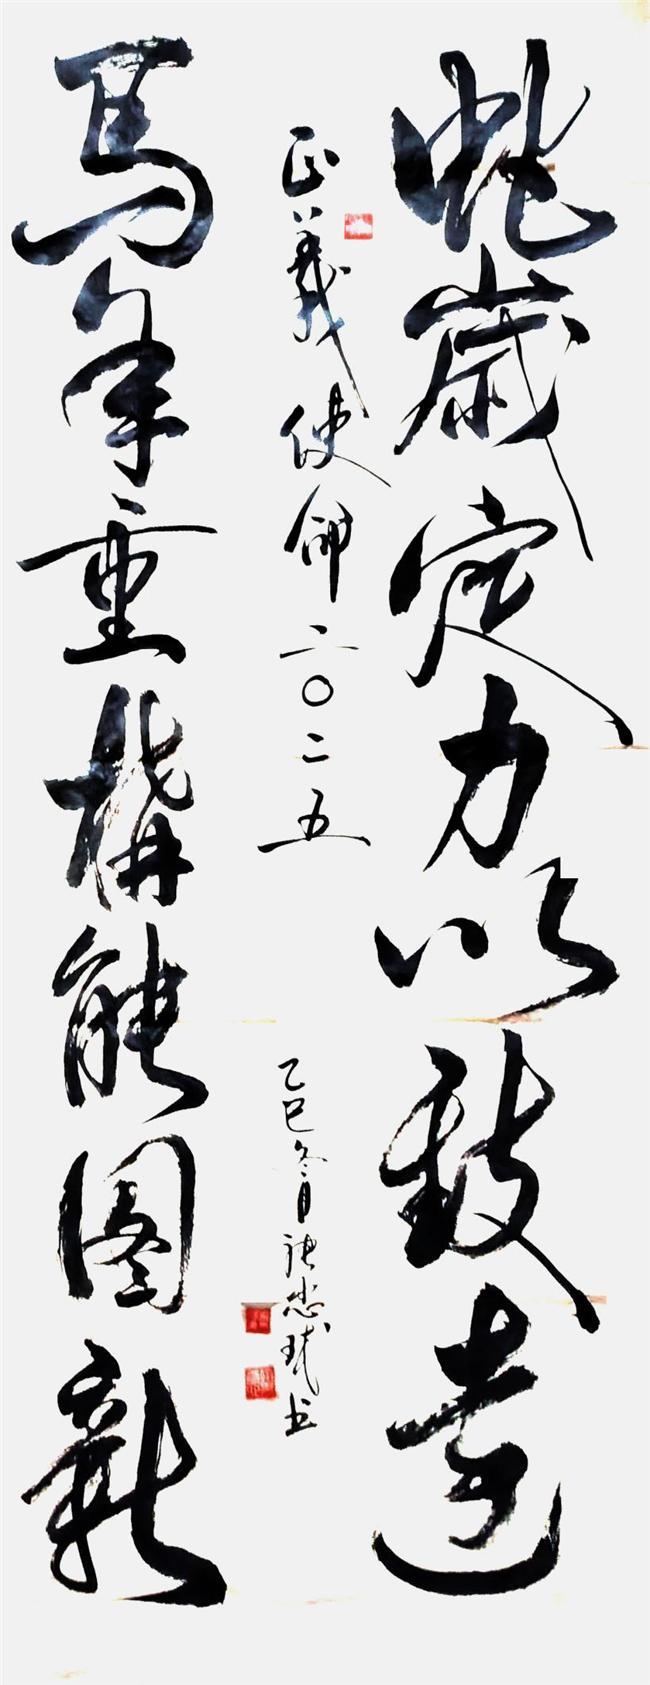 虵歲定力以致遠
正義使命二〇二五
乙巳冬月
馬年重構能图新